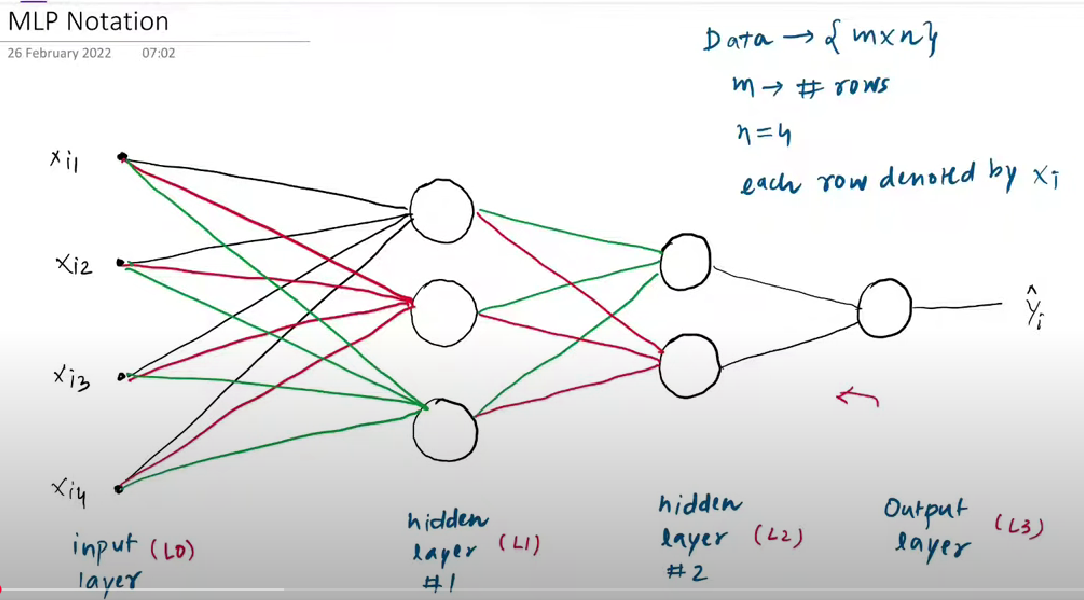 MLP Notation
26 February 2022 07:02
Data → {m×n}
m → # rows
n=4
each row denoted by xi
xi1
xi2
xi3
xi4
ŷi
input (L0)
layer
hidden (L1)
layer
#1
hidden (L2)
layer
#2
Output (L3)
layer